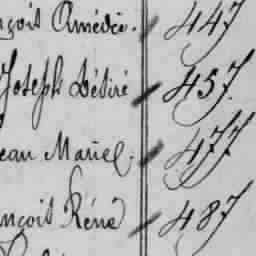 nçois Amédée. 447
Joseph Désiré 457.
ean Marie. 477
nçois Réné 487